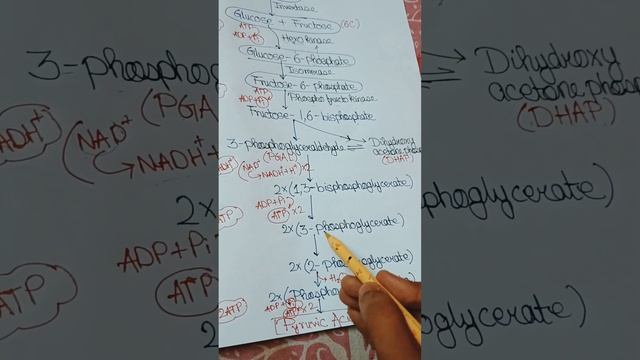 Invertase
Glucose + Fructose (6C)
ATP
ADP+Pi
Hexokinase
Glucose-6-phosphate
Isomerase
Fructose-6-phosphate
ATP
ADP+Pi
Phosphofructokinase
Fructose-1,6-bisphosphate
3-phosphoglyceraldehyde ⇌ Dihydroxy
acetone phos
(PGAL)
(DHAP)
NAD⁺
NADH+H⁺ ×2
2×(1,3-bisphosphoglycerate)
ADP+Pi
ATP ×2
2×(3-phosphoglycerate)
2×(2-phosphoglycerate)
2×(Phosph
ADP+Pi
ATP×2
Pyruvic Aci
3-phosphog
(PGAL
NADH⁺
NAD⁺
NADH+H⁺
2×(
ADP+Pi
ATP
2ATP
Dihydroxy
acetone phosp
(DHAP)
phoglycerate)
oglycerate)